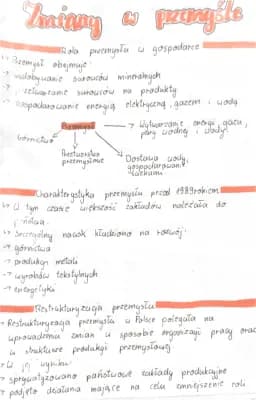 Zmiany w przemyśle
Rola przemysłu w gospodarce
-> Przemysł obejmuje:
-> wydobywanie surowców mineralnych
-> przetwarzanie surowców na produkty
-> gospodarowanie energią elektryczną, gazem i wodą
Przemysł
-> Wytwarzanie energi, gazu, pary wodnej i wody
Górnictwo
Przetwórstwo przemysłowe
Dostawa wody, gospodarowanie ściekami
Charakterystyka przemysłu przed 1989 rokiem
-> W tym czasie większość zakładów należała do państwa.
-> Szczególny nacisk kładziono na rozwój:
-> górnictwa
-> produkcji metali
-> wyrobów tekstylnych
-> energetyki
Restrukturyzacja przemysłu
-> Restrukturyzacja przemysłu w Polsce polegała na
wprowadzeniu zmian w sposobie organizacji pracy oraz
w strukturze produkcji przemysłowej
-> W jej wyniku:
-> sprywatyzowano państwowe zakłady produkcyjne
-> podjęto działania mające na celu zmniejszenie roli